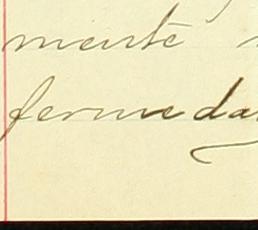 mente
fermeda